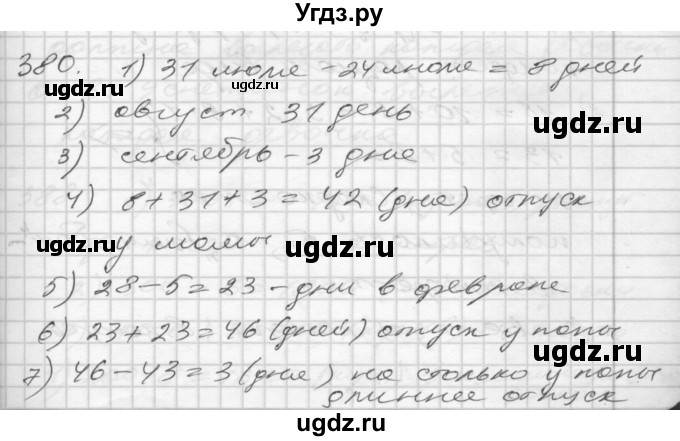 Угдз.ру
380. 1) 31 июля - 24 июля = 8 дней
ugdz.ru ugdz.ru
2) август 31 день
ugdz.ru
3) сентябрь - 3 дня
ugdz.ru
4) 8 + 31 + 3 = 42 (дня) отпуск
ugdz.ru
у мамы
ugdz.ru
5) 28 - 5 = 23 - дни в феврале
ugdz.ru
6) 23 + 23 = 46 (дней) отпуск у папы
ugdz.ru
7) 46 - 43 = 3 (дня) на столько у папы
длиннее отпуск
ugdz.ru ugdz.ru